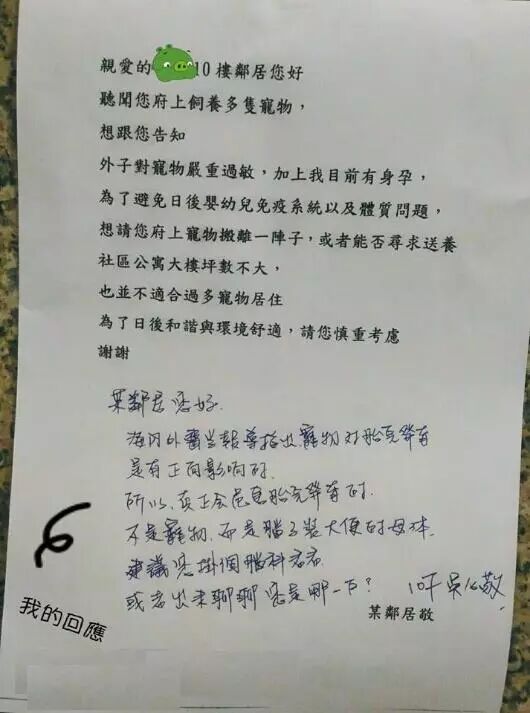 親愛的 10 樓鄰居您好
聽聞您府上飼養多隻寵物，
想跟您告知
外子對寵物嚴重過敏，加上我目前有身孕，
為了避免日後嬰幼兒免疫系統以及體質問題，
想請您府上寵物搬離一陣子，或者能否尋求送養
社區公寓大樓坪數不大，
也並不適合過多寵物居住
為了日後和諧與環境舒適，請您慎重考慮
謝謝
某鄰居您好.
海內外醫學報導指出,寵物對胎兒發育
是有正向影響的.
所以,真正会危害胎兒發育的.
不是寵物,而是腦子裝大便的母体.
建議您掛個腦科看看
或者出來聊聊您是哪一户？
10F 吳 敬
某鄰居敬
我的回應